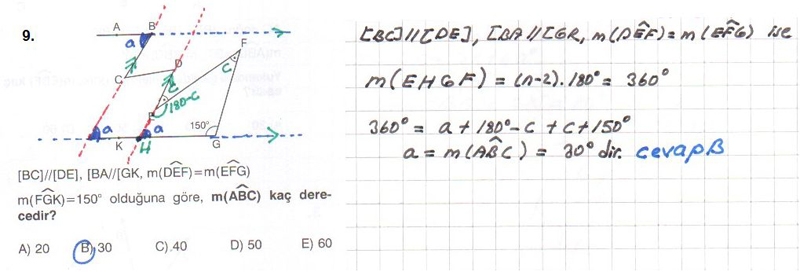 9.
A B
a
F
C D
c
c
E
180-c
a a 150°
K H G
[BC]//[DE], [BA//[GK, m(DEF)=m(EFG)
m(FGK)=150° olduğuna göre, m(ABC) kaç dere-
cedir?
A) 20 B) 30 C) 40 D) 50 E) 60
[BC]//[DE], [BA//[GK, m(DEF)=m(EFG) ise
m(EHGF) = (n-2).180° = 360°
360° = a + 180°-c + c + 150°
a = m(ABC) = 30° dir. cevap B